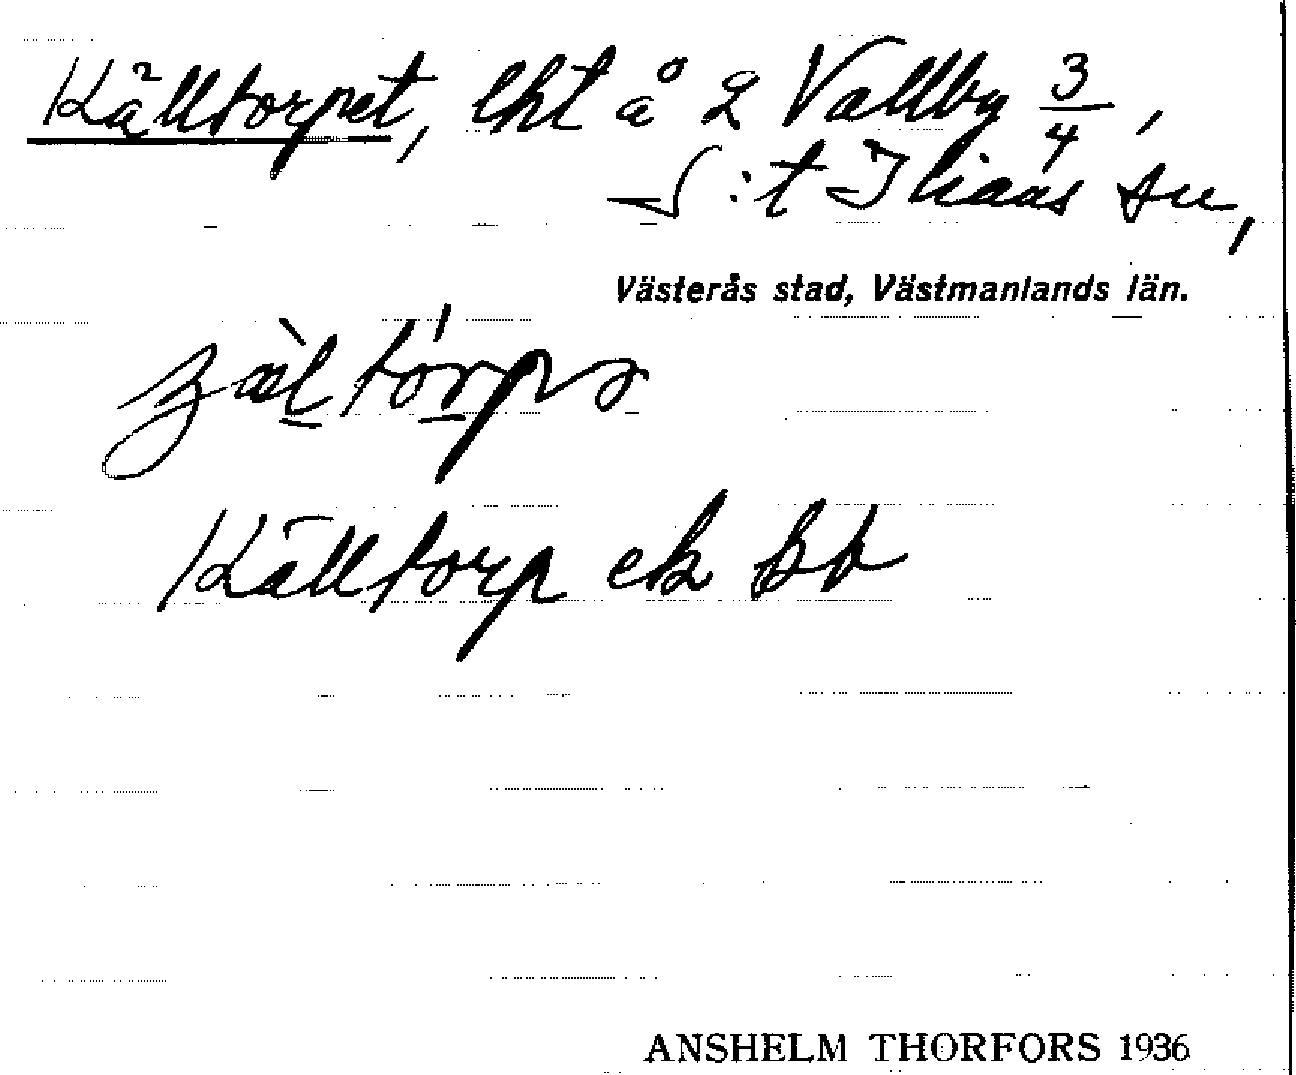 Källtorpet, lht å 2 Vallby 3/4,
S:t Ilians sn,
Västerås stad, Västmanlands län.
Källtorp ek bl
ANSHELM THORFORS 1936